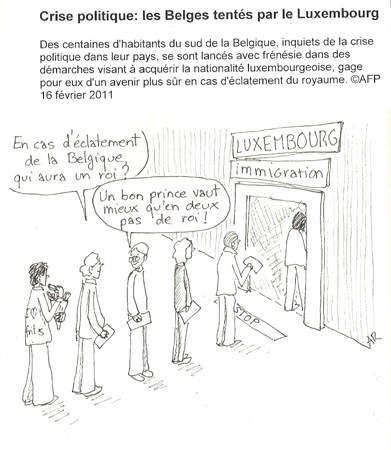 Crise politique: les Belges tentés par le Luxembourg
Des centaines d'habitants du sud de la Belgique, inquiets de la crise
politique dans leur pays, se sont lancés avec frénésie dans des
démarches visant à acquérir la nationalité luxembourgeoise, gage
pour eux d'un avenir plus sûr en cas d'éclatement du royaume. ©AFP
16 février 2011
En cas d'éclatement
de la Belgique,
qui aura un roi?
Un bon prince vaut
mieux qu'en deux
pas de roi!
LUXEMBOURG
immigration
STOP
AR